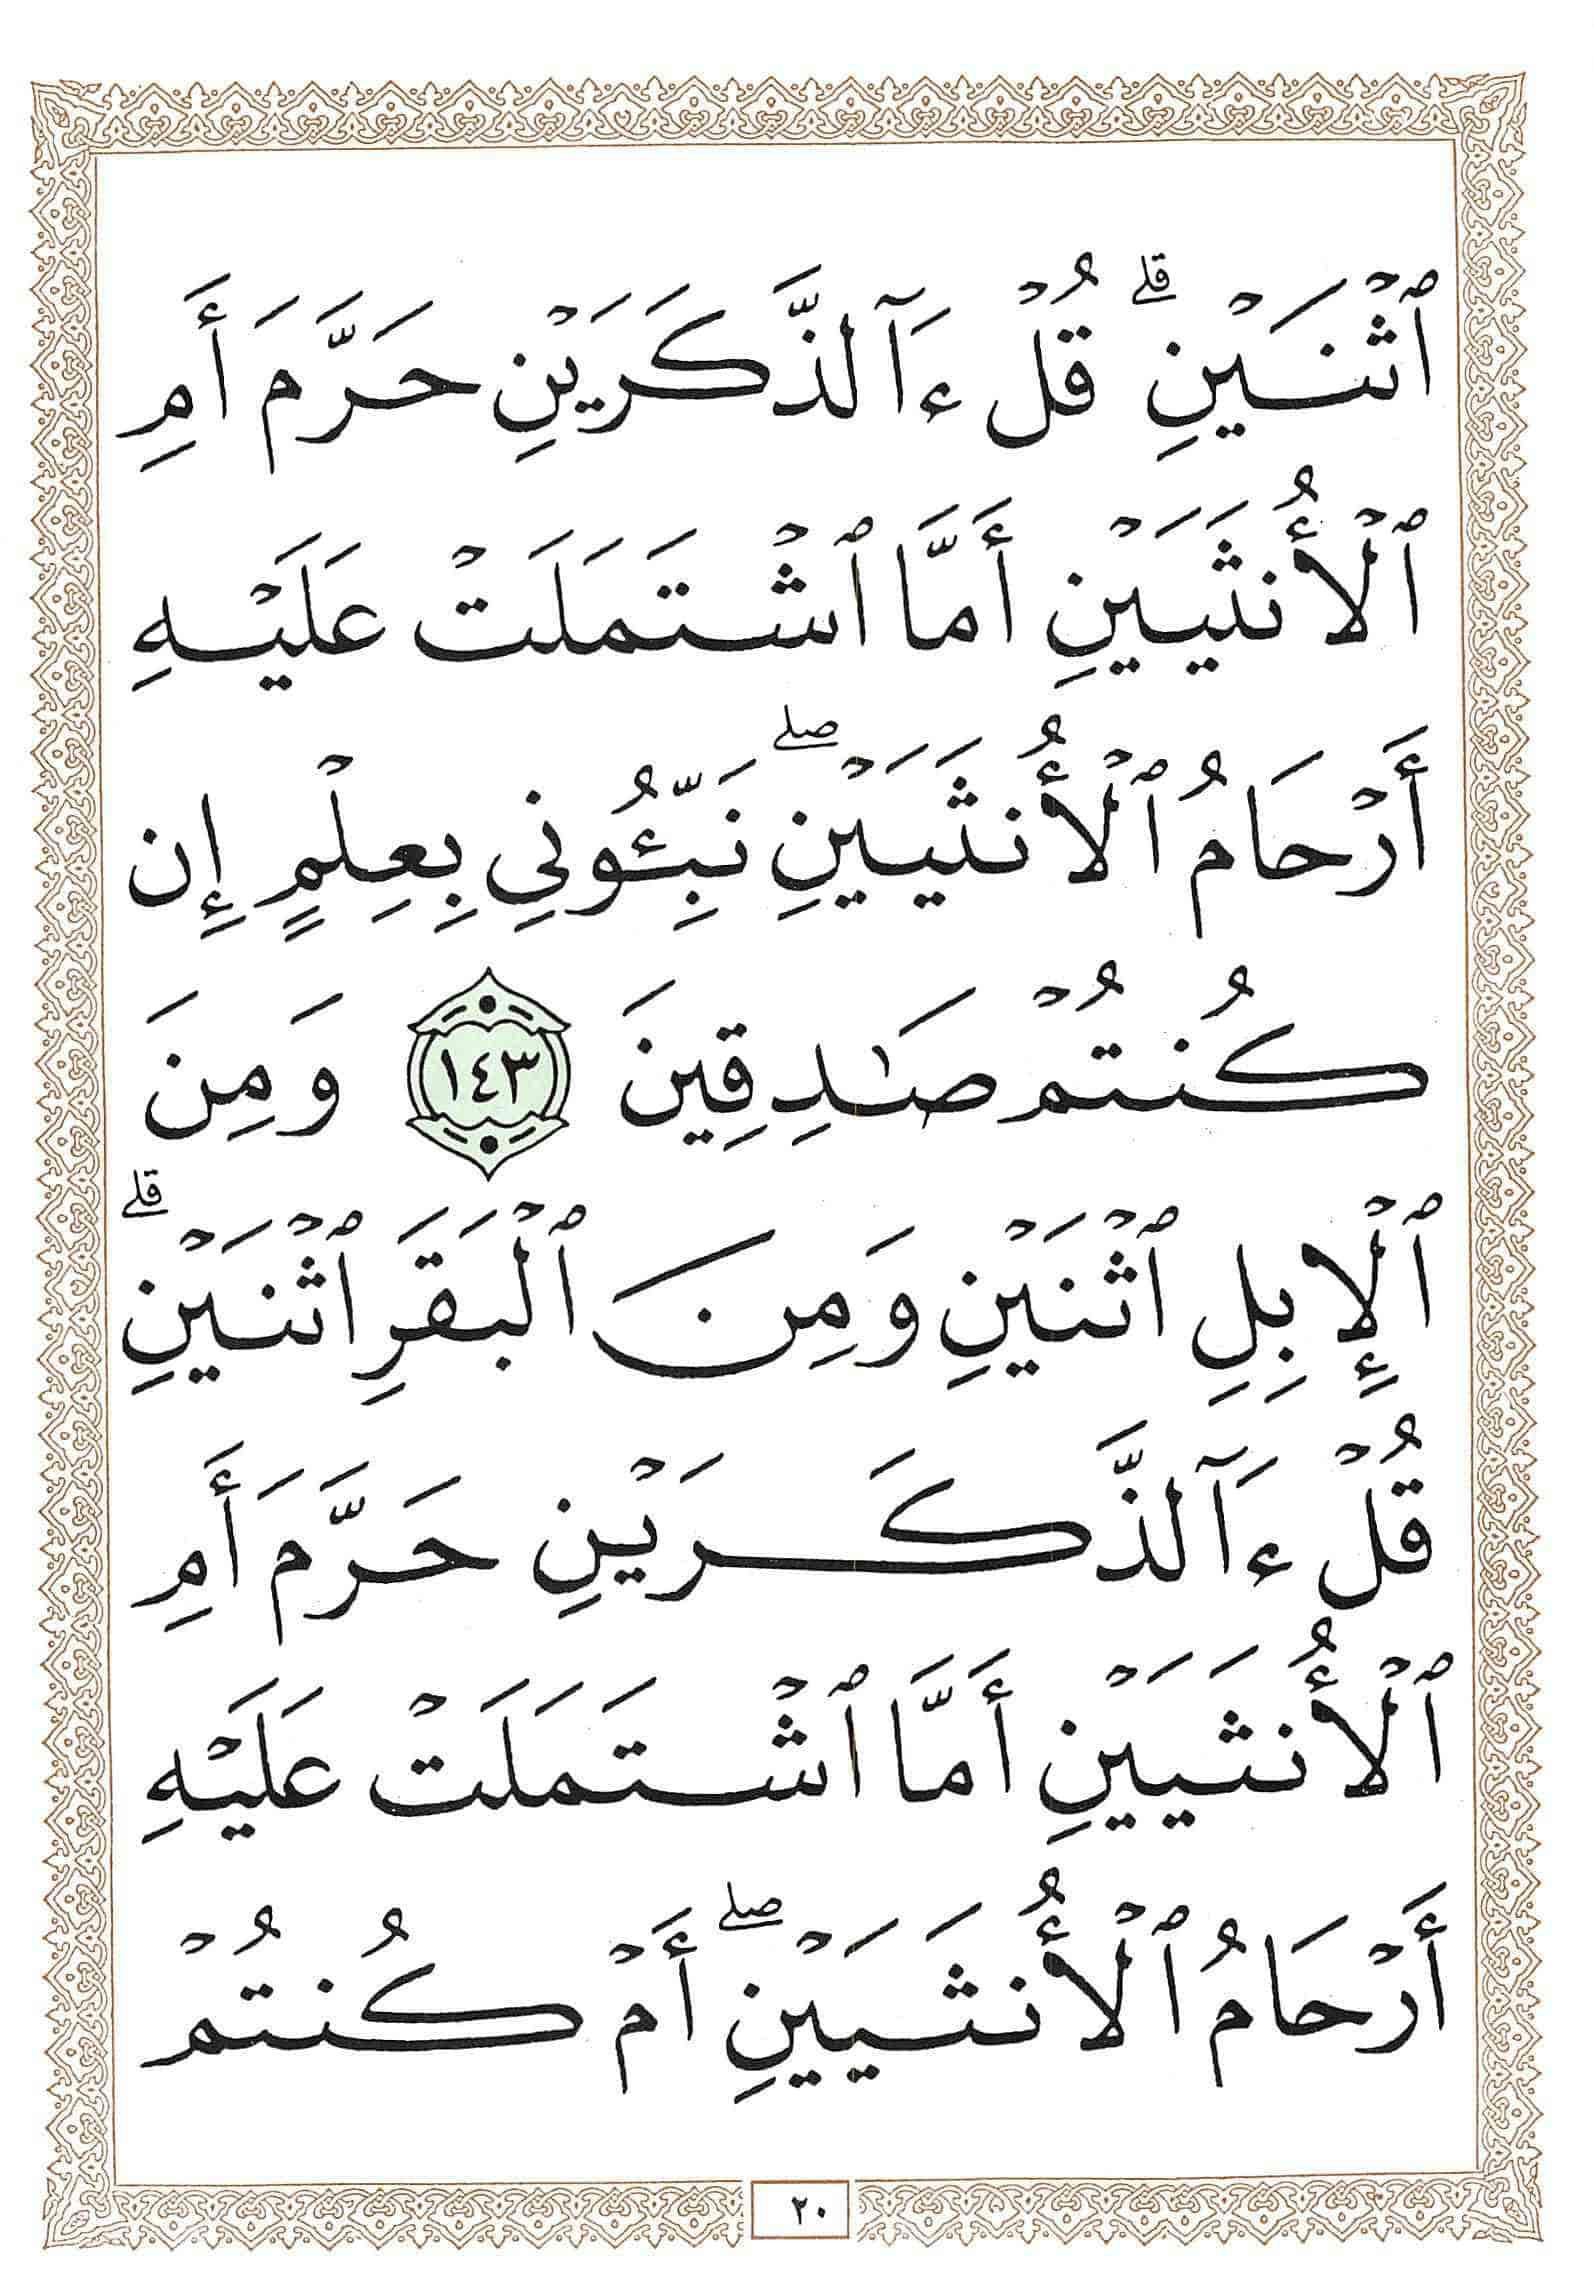 ٱثْنَيْنِ ۗ قُلْ ءَآلذَّكَرَيْنِ حَرَّمَ أَمِ
ٱلْأُنثَيَيْنِ أَمَّا ٱشْتَمَلَتْ عَلَيْهِ
أَرْحَامُ ٱلْأُنثَيَيْنِ ۖ نَبِّـُٔونِي بِعِلْمٍ إِن
كُنتُمْ صَـٰدِقِينَ ١٤٣ وَمِنَ
ٱلْإِبِلِ ٱثْنَيْنِ وَمِنَ ٱلْبَقَرِ ٱثْنَيْنِ ۗ
قُلْ ءَآلذَّكَرَيْنِ حَرَّمَ أَمِ
ٱلْأُنثَيَيْنِ أَمَّا ٱشْتَمَلَتْ عَلَيْهِ
أَرْحَامُ ٱلْأُنثَيَيْنِ ۖ أَمْ كُنتُمْ
٢٠